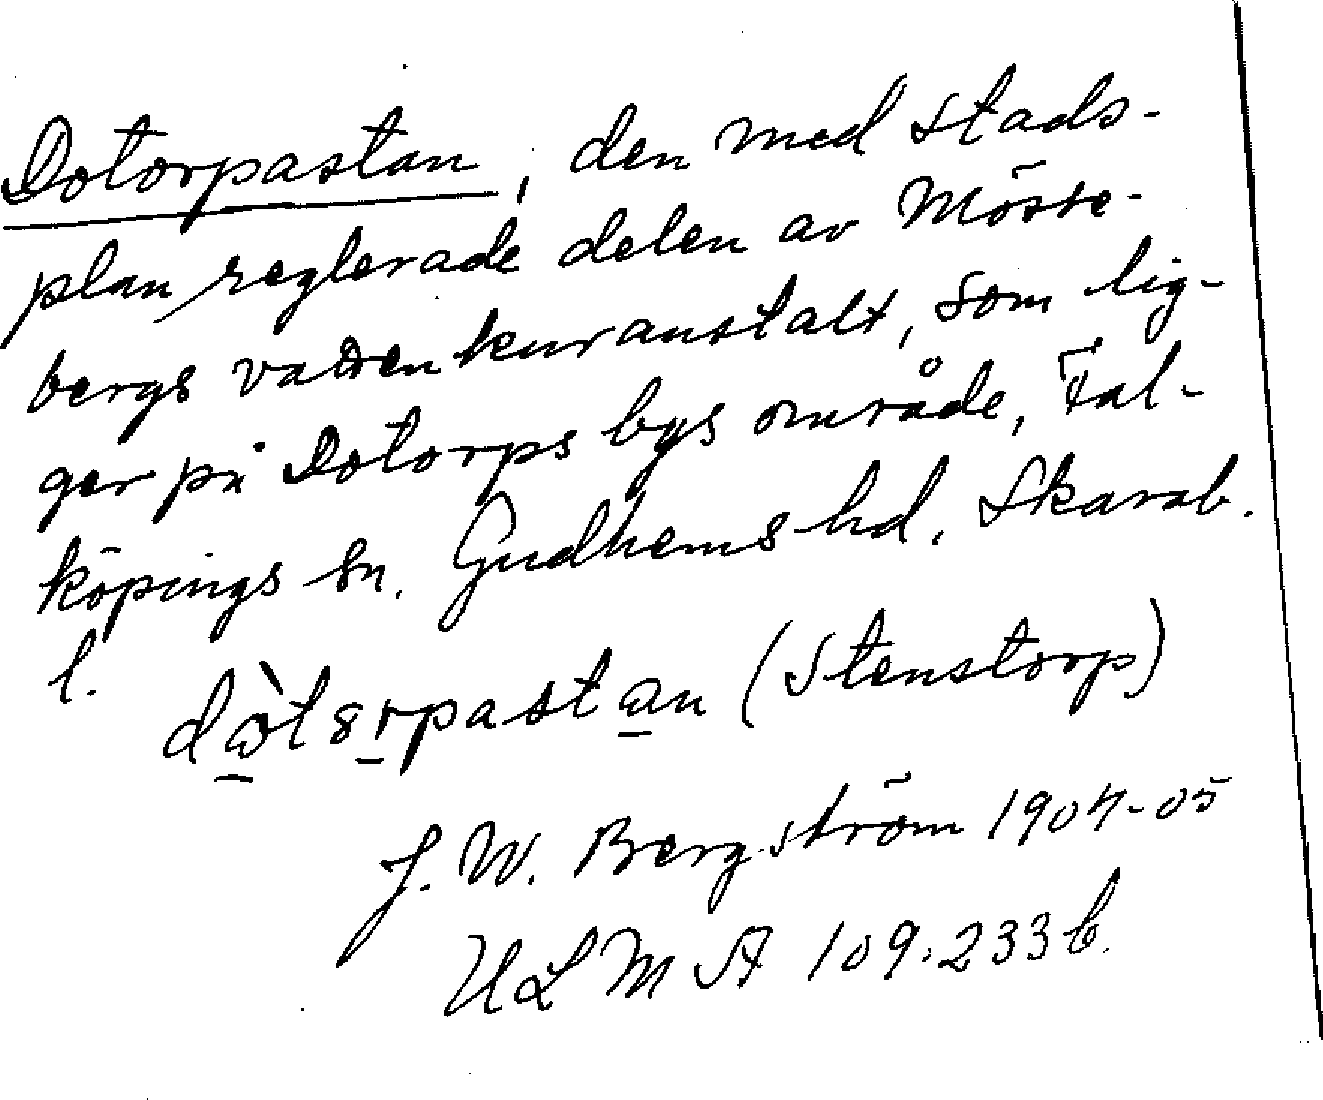 Dotorpastan, den med stads-
plan reglerade delen av Mösse-
bergs vattenkuranstalt, som lig-
ger på Dotorps bys område, Fal-
köpings sn. Gudhems hd. Skarab.
l.
(Stenstorp)
J. W. Bergström 1904-05
ULMA 109:233 b.